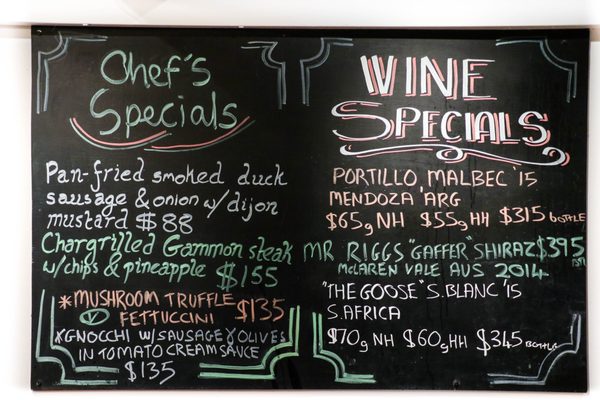 Chef's
Specials
Pan-fried smoked duck
sausage & onion w/ dijon
mustard $88
Chargrilled Gammon steak
w/chips & pineapple $155
*MUSHROOM TRUFFLE
V FETTUCCINI $135
*GNOCCHI W/ SAUSAGE & OLIVES
IN TOMATO CREAM SAUCE
$135
WINE
SPECIALS
PORTILLO, MALBEC '15
MENDOZA 'ARG
$65g NH $55g HH $315 BOTTLE
MR RIGGS "GAFFER" SHIRAZ $395
MCLAREN VALE AUS 2014
"THE GOOSE" S.BLANC '15
S.AFRICA
$70g NH $60g HH $345 BOTTLE